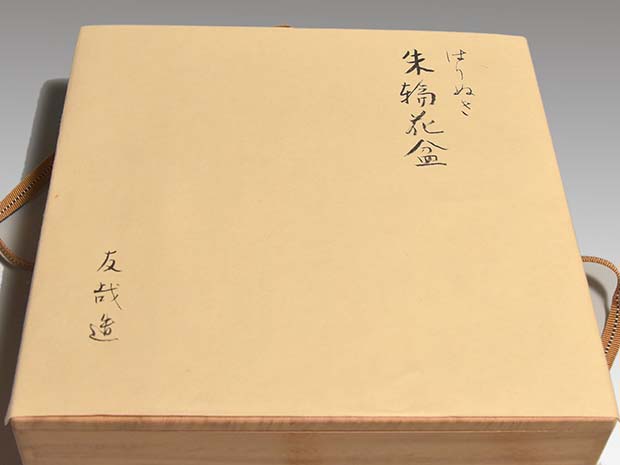 はりぬき
朱輪花盆
友哉造